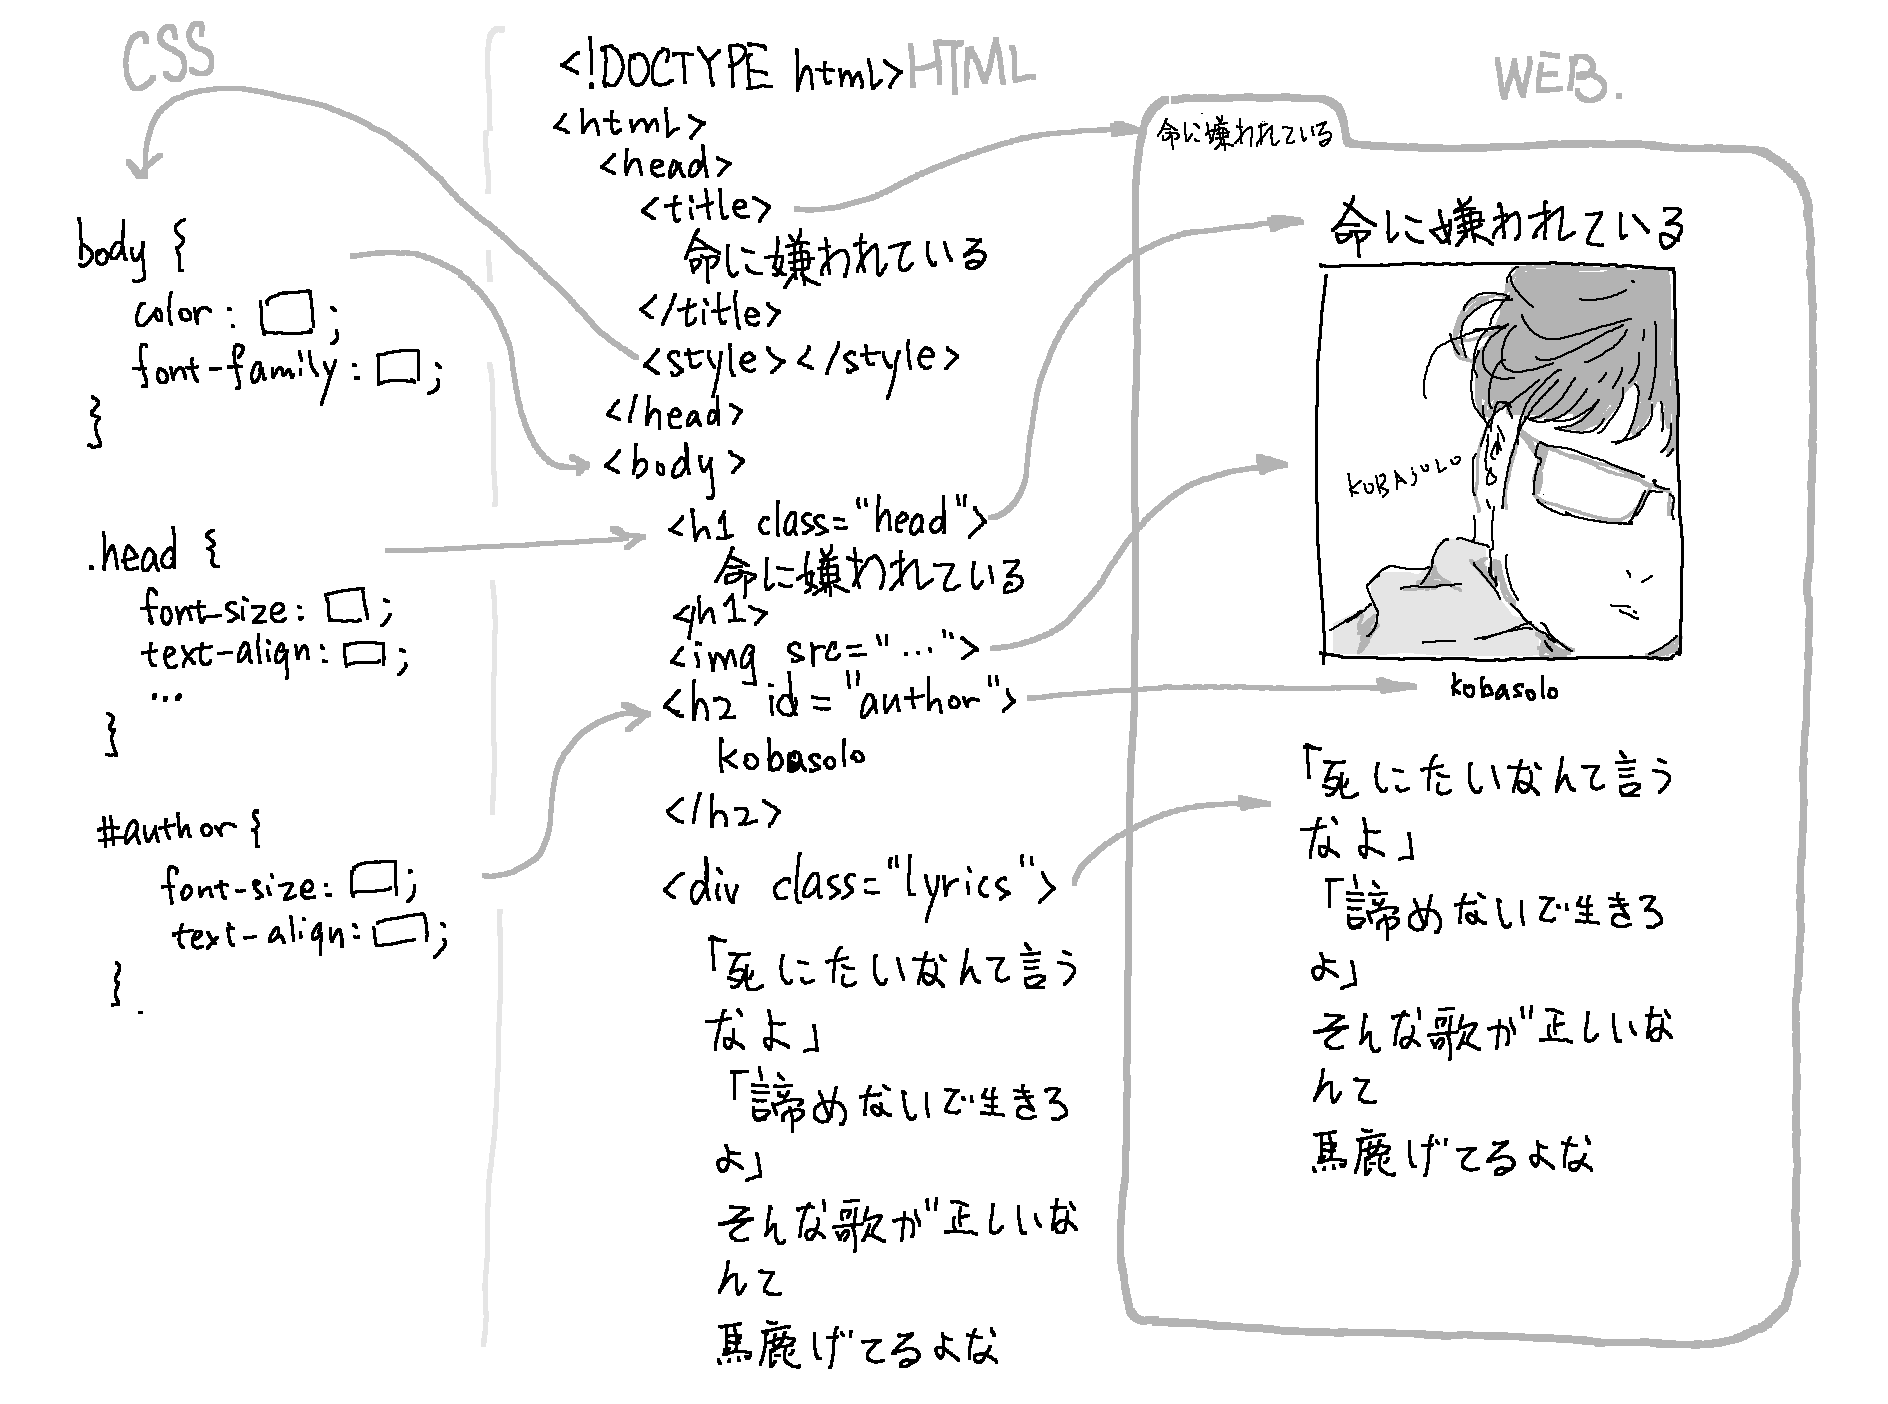 CSS
body {
color: ;
font-family: ;
}
.head {
font-size: ;
text-align: ;
...
}
#author {
font-size: ;
text-align: ;
}.
HTML
<!DOCTYPE html>
<html>
<head>
<title>
命に嫌われている
</title>
<style></style>
</head>
<body>
<h1 class="head">
命に嫌われている
<h1>
<img src="...">
<h2 id="author">
kobasolo
</h2>
<div class="lyrics">
「死にたいなんて言う
なよ」
「諦めないで生きろ
よ」
そんな歌が正しいな
んて
馬鹿げてるよな
WEB.
命に嫌われている
命に嫌われている
KOBASOLO
kobasolo
「死にたいなんて言う
なよ」
「諦めないで生きろ
よ」
そんな歌が正しいな
んて
馬鹿げてるよな